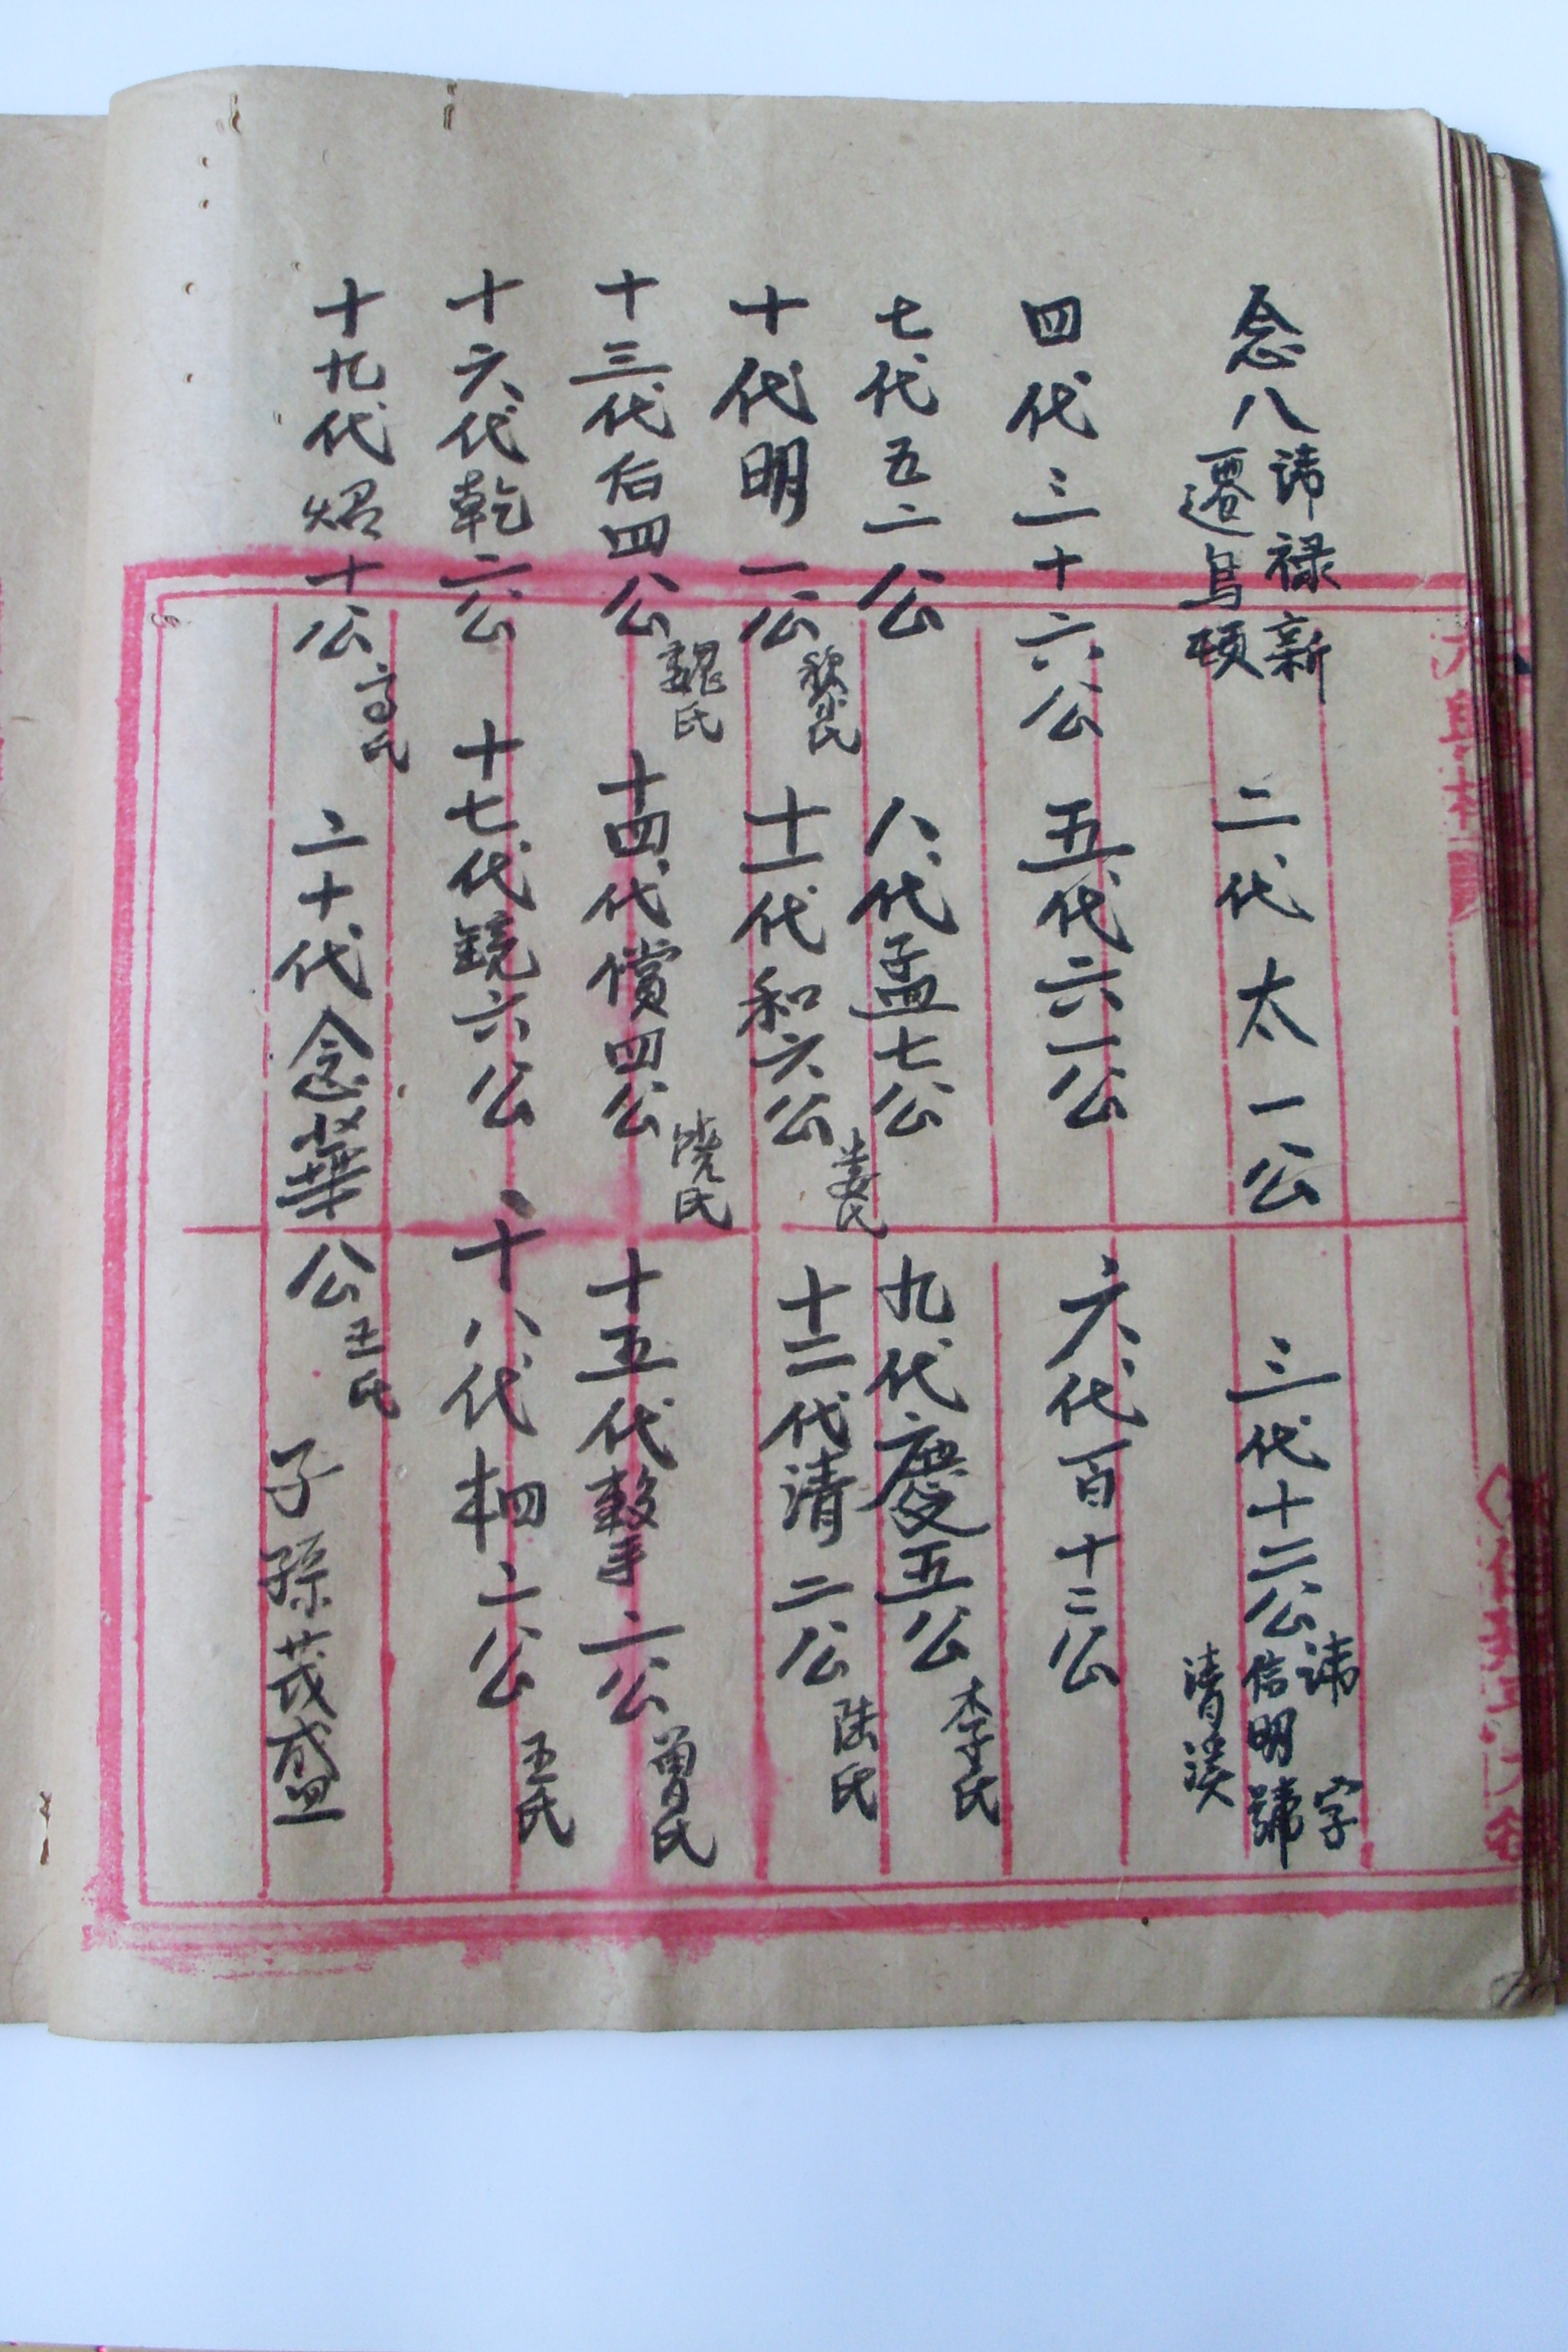 念八 諱禄新 遷烏頓 二代太一公 三代十二公 諱信明號字清溪
四代三十六公 五代六一公 六代百十二公
七代五二公 八代孟七公 九代慶五公 李氏
十代明一公 黎氏 十一代和六公 姜氏 十二代清二公 陆氏
十三代后四公 魏氏 十四代償四公 饶氏 十五代二公 曾氏
十六代乾二公 十七代鏡六公 十八代二公 王氏
十九代炤十公 高氏 二十代念華公 王氏 子孫茂盛